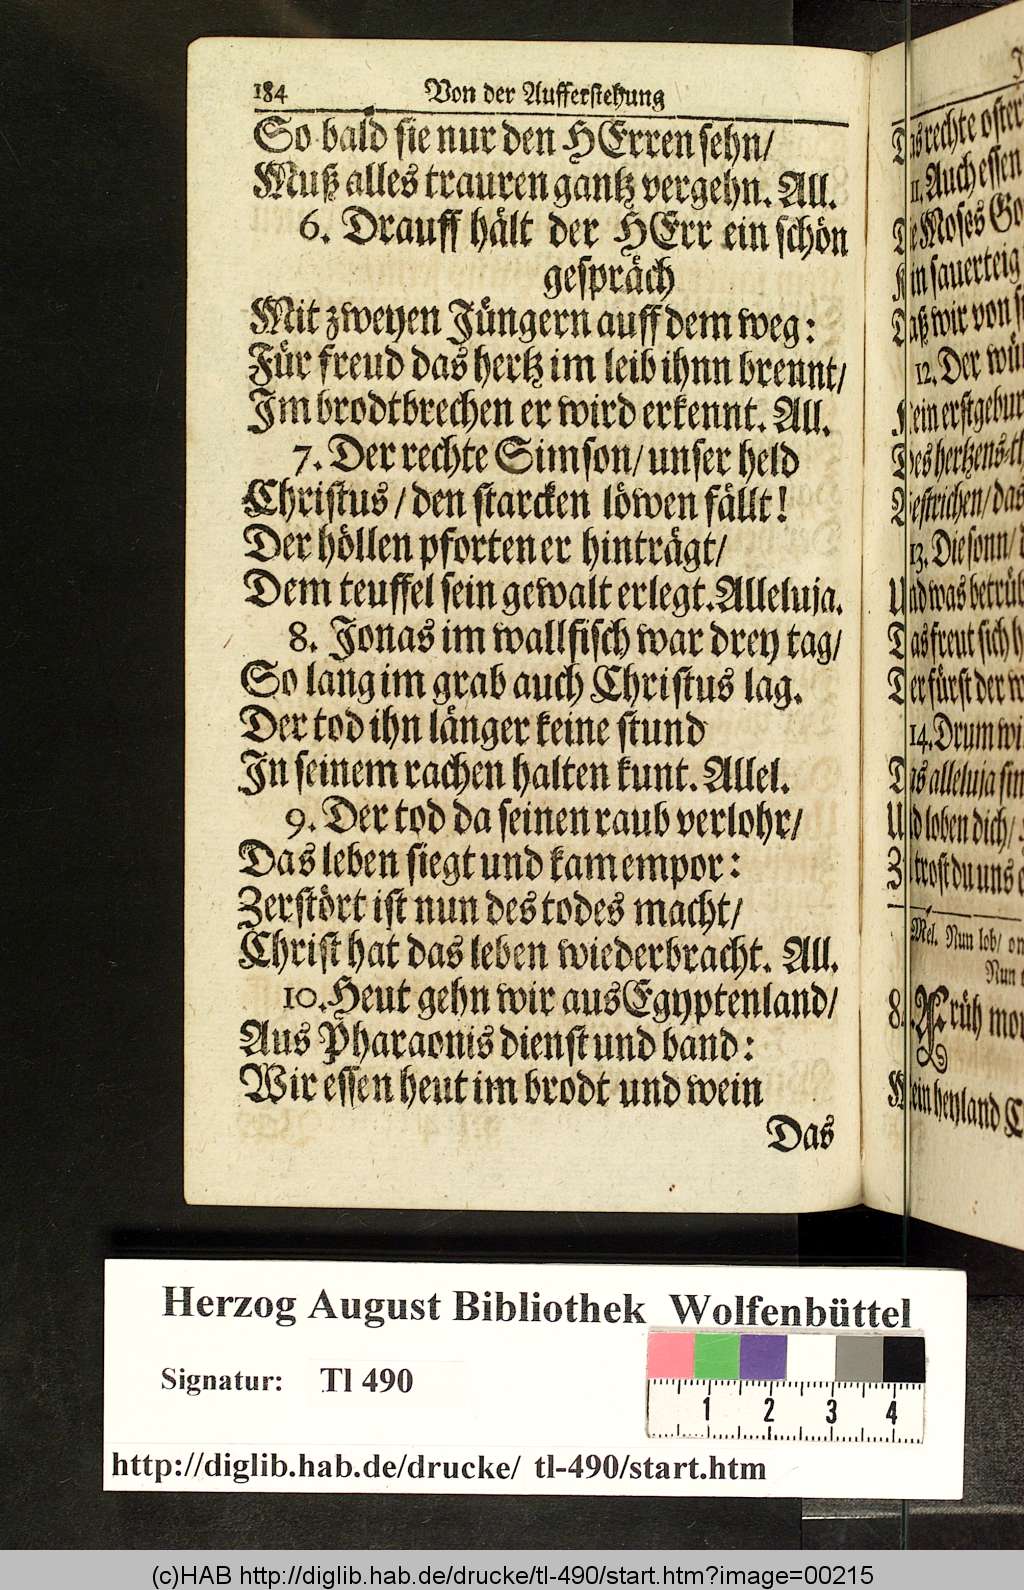 184 Von der Aufferstehung
So bald sie nur den HErren sehn/
Muß alles trauren gantz vergehn. All.
6. Drauff hält der HErr ein schön
gespräch
Mit zweyen Jüngern auff dem weg:
Für freud das hertz im leib ihnn brennt/
Im brodtbrechen er wird erkennt. All.
7. Der rechte Simson/ unser held
Christus/ den starcken löwen fällt!
Der höllen pforten er hinträgt/
Dem teuffel sein gewalt erlegt. Alleluja.
8. Jonas im wallfisch war drey tag/
So lang im grab auch Christus lag.
Der tod ihn länger keine stund
In seinem rachen halten kunt. Allel.
9. Der tod da seinen raub verlohr/
Das leben siegt und kam empor:
Zerstört ist nun des todes macht/
Christ hat das leben wiederbracht. All.
10. Heut gehn wir aus Egyptenland/
Aus Pharaonis dienst und band:
Wir essen heut im brodt und wein
Das
rechte
11. Auch essen
Moses
sauerteig
wir von
12. Der
erstgebur
hertzens
das
13. Die sonn/
was
freut sich
fürst der
14. Drum
alleluja
loben dich/
trost du uns
Mel. Nun lob/
Nun
8. Früh
heyland
Herzog August Bibliothek Wolfenbüttel
Signatur: Tl 490
1 2 3 4
http://diglib.hab.de/drucke/ tl-490/start.htm
(c)HAB http://diglib.hab.de/drucke/tl-490/start.htm?image=00215